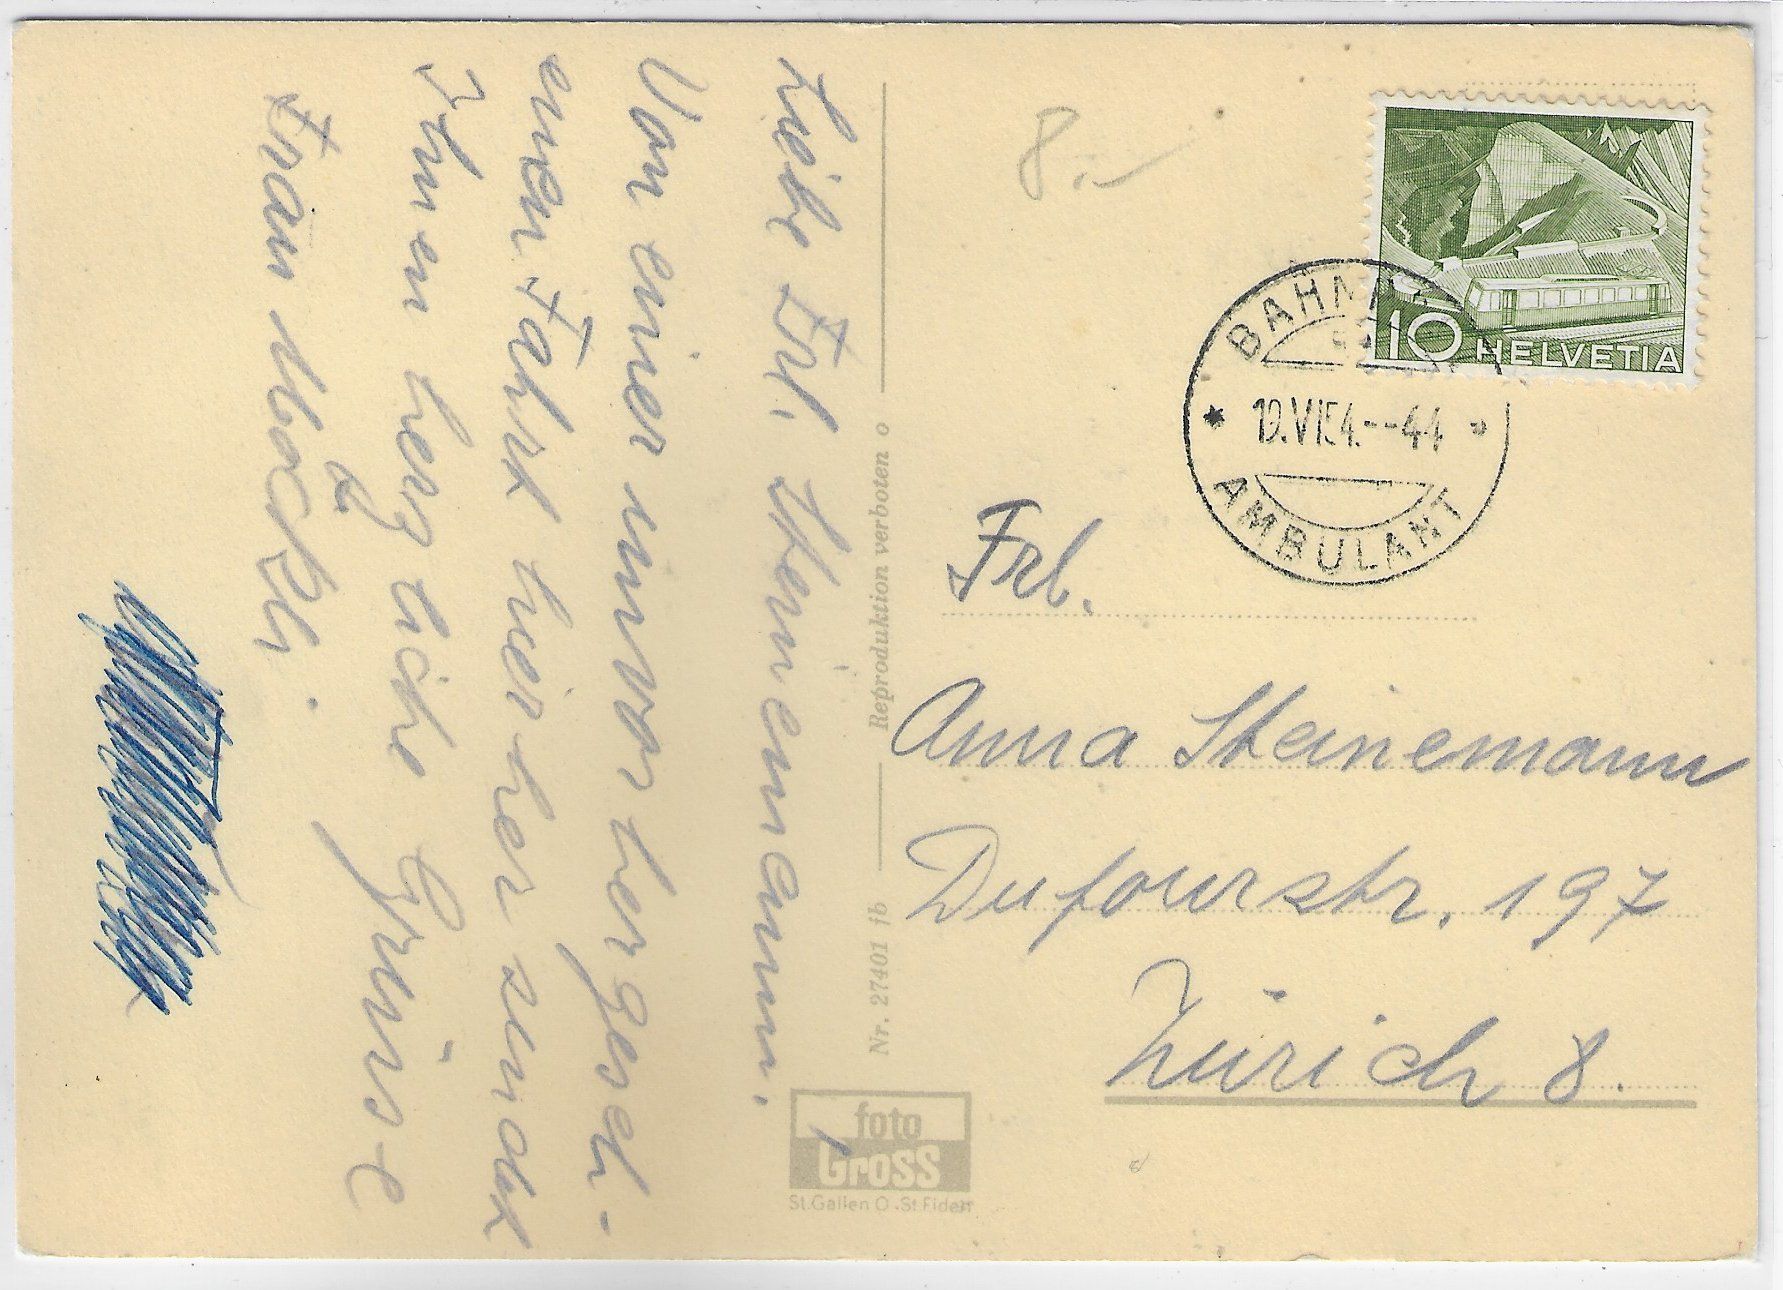 Liebe Frl. Steinemann.
Von einer unvorhergeseh-
enen Fahrt hierher sendet
Ihnen herzliche Grüsse
Frau
Reproduktion verboten o
Nr. 27401 fb
foto
Gross
St.Gallen O -St.Fiden
8.-
10 HELVETIA
BAHNPOST
19.VI.54.--44
AMBULANT
Frl.
Anna Steinemann
Dufourstr. 197
Zürich 8.